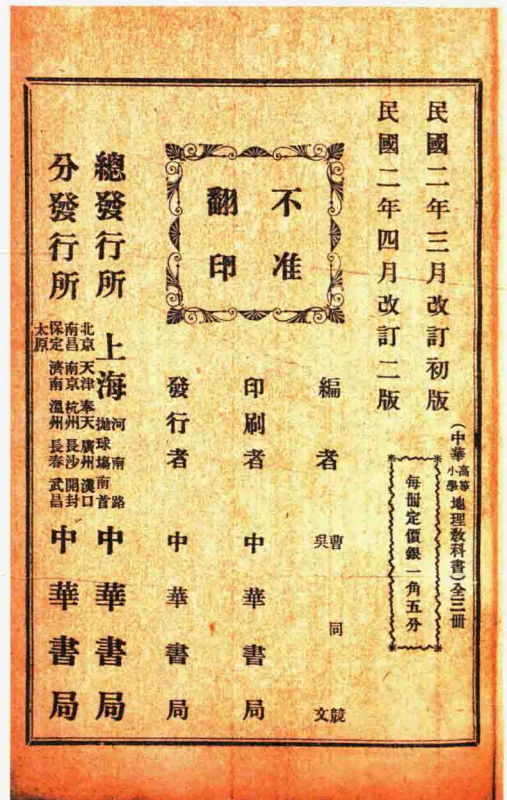 民國二年三月改訂初版
民國二年四月改訂二版
(中華高等小學地理教科書)全三冊
每冊定價銀一角五分
不准
翻印
編者
曹同文
吳競
印刷者 中華書局
發行者 中華書局
總發行所 上海 河南路拋球場南首 中華書局
分發行所
北京 天津 奉天 廣州 漢口
南昌 南京 杭州 長沙 開封
保定 濟南 溫州 長春 武昌
太原
中華書局